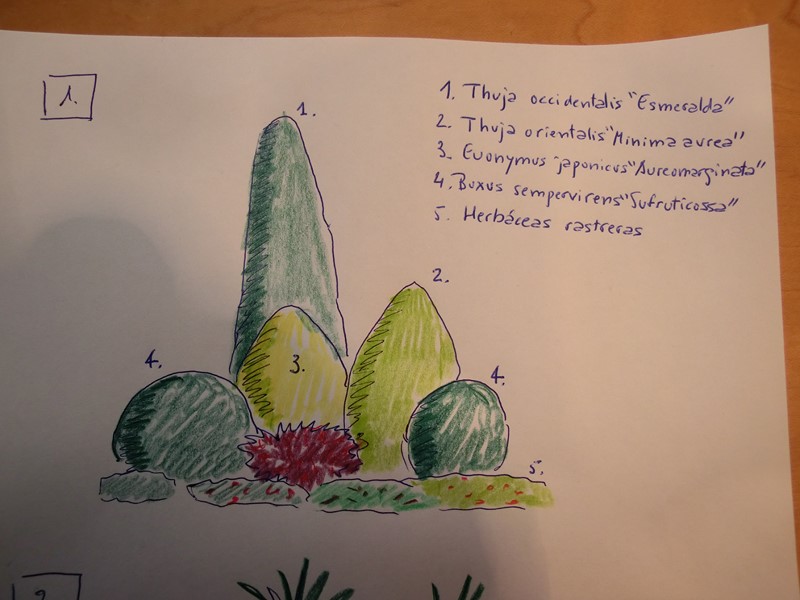 1.
1. Thuja occidentalis "Esmeralda"
2. Thuja orientalis "Minima aurea"
3. Euonymus japonicus "Aureomarginata"
4. Buxus sempervirens "Sufruticossa"
5. Herbáceas rastreras
1.
2.
3.
4.
4.
5.
2.